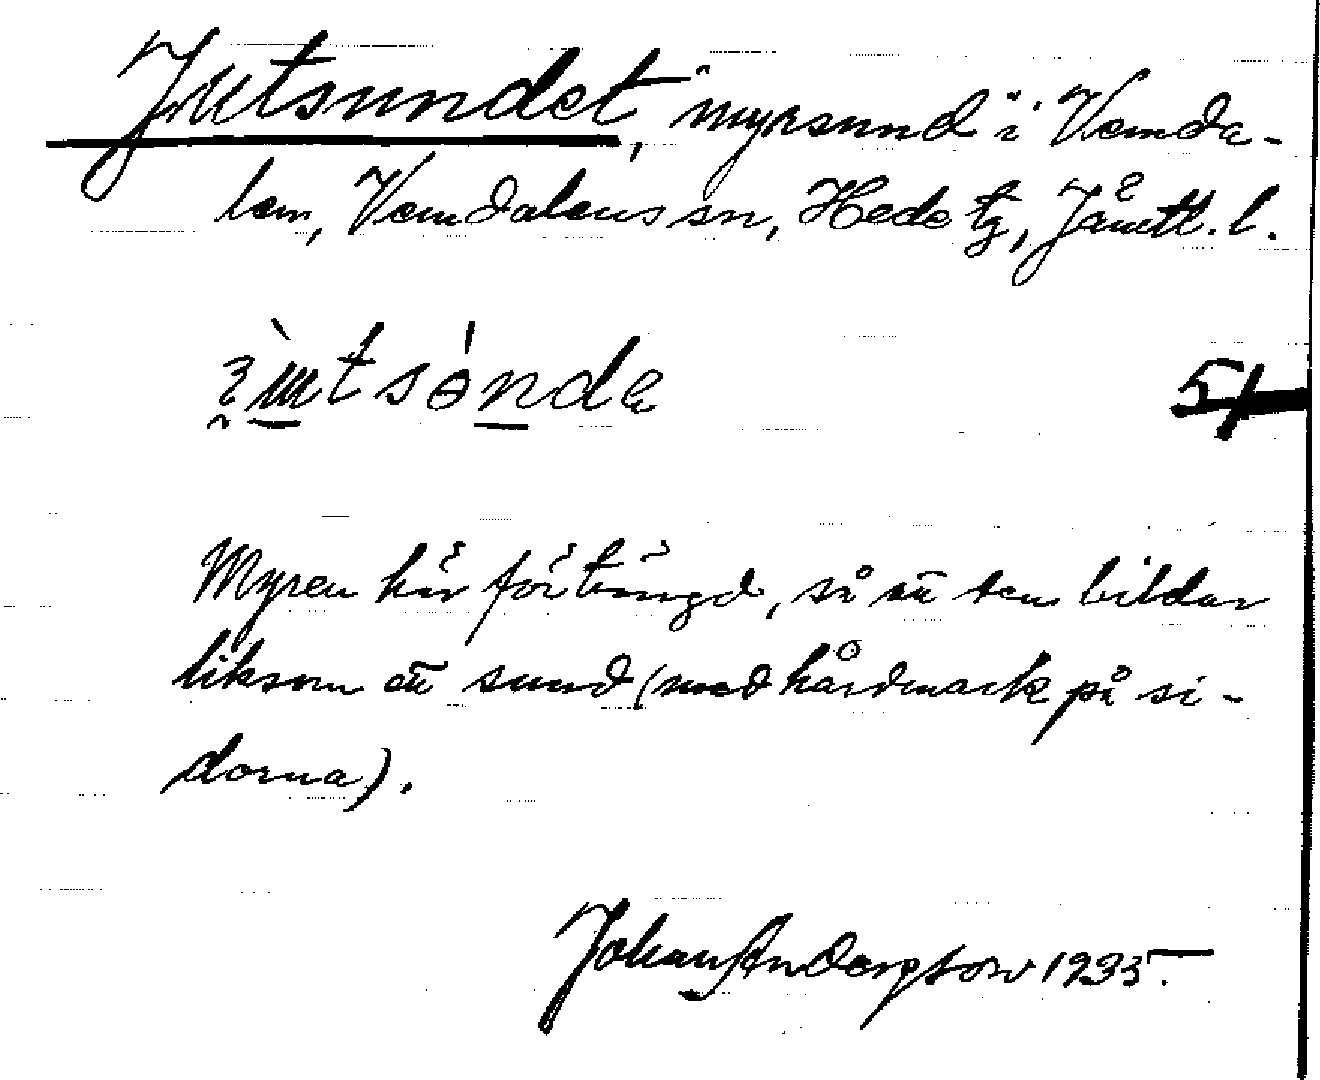 Jutsundet, myrsund i Vemda-
len, Vemdalens sn, Hede tg, Jämtl. l.
51
Myren här förträngd, så att den bildar
liksom ett sund (med hårdmark på si-
dorna).
Johan Anderson 1935.